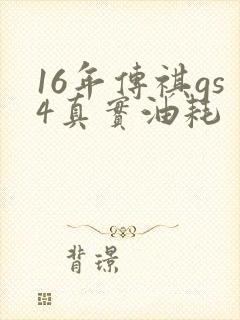 16年傳祺gs
4真實油耗
背景